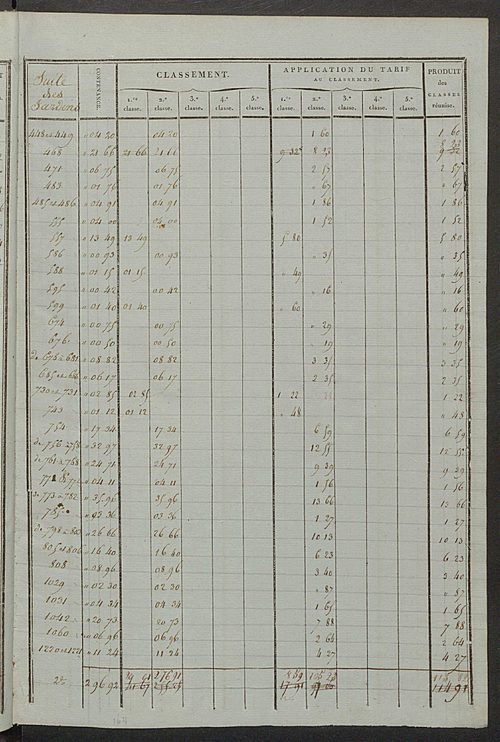 Suite des Jardins
CONTENANCE.
CLASSEMENT.
APPLICATION DU TARIF AU CLASSEMENT.
PRODUIT des CLASSES réunies.
1.re classe. 2.e classe. 3.e classe. 4.e classe. 5.e classe. 1.re classe. 2.e classe. 3.e classe. 4.e classe. 5.e classe.
448 et 449 " 04 20 04 20 1 60 1 60
468 " 21 66 21 66 21 66 9 32 8 23 8 23 9 32
471 " 06 75 06 75 2 57 2 57
483 " 01 76 01 76 " 67 " 67
485 et 486 " 04 91 04 91 1 86 1 86
555 " 04 00 04 00 1 52 1 52
557 " 13 49 13 49 5 80 5 80
586 " 00 93 00 93 " 35 " 35
588 " 01 15 01 15 " 49 " 49
595 " 00 42 00 42 " 16 " 16
599 " 01 40 01 40 " 60 " 60
674 " 00 75 00 75 " 29 " 29
676 " 00 50 00 50 " 19 " 19
de 678 à 681 " 08 82 08 82 3 35 3 35
685 et 686 " 06 17 06 17 2 35 2 35
730 et 731 " 02 85 02 85 1 22 1 22
743 " 01 12 01 12 " 48 " 48
754 " 17 34 17 34 6 59 6 59
de 756 à 758 " 32 97 32 97 12 53
" 24 71 24 71 9 39 9 39
" 04 11 04 11 1 56 1 56
de 773 à 782 " 35 96 35 96 13 66 13 66
785 " 03 36 03 36 1 27 1 27
" 26 66 26 66 10 13 10 13
805 et 806 " 16 40 16 40 6 23 6 23
808 " 08 96 08 96 3 40 3 40
1029 " 02 30 02 30 " 87 " 87
1031 " 04 34 04 34 1 65 1 65
1042 " 20 73 20 73 7 88 7 88
1060 " 06 96 06 96 2 64 2 64
" 11 24 11 24 4 27 4 27
2 96 92